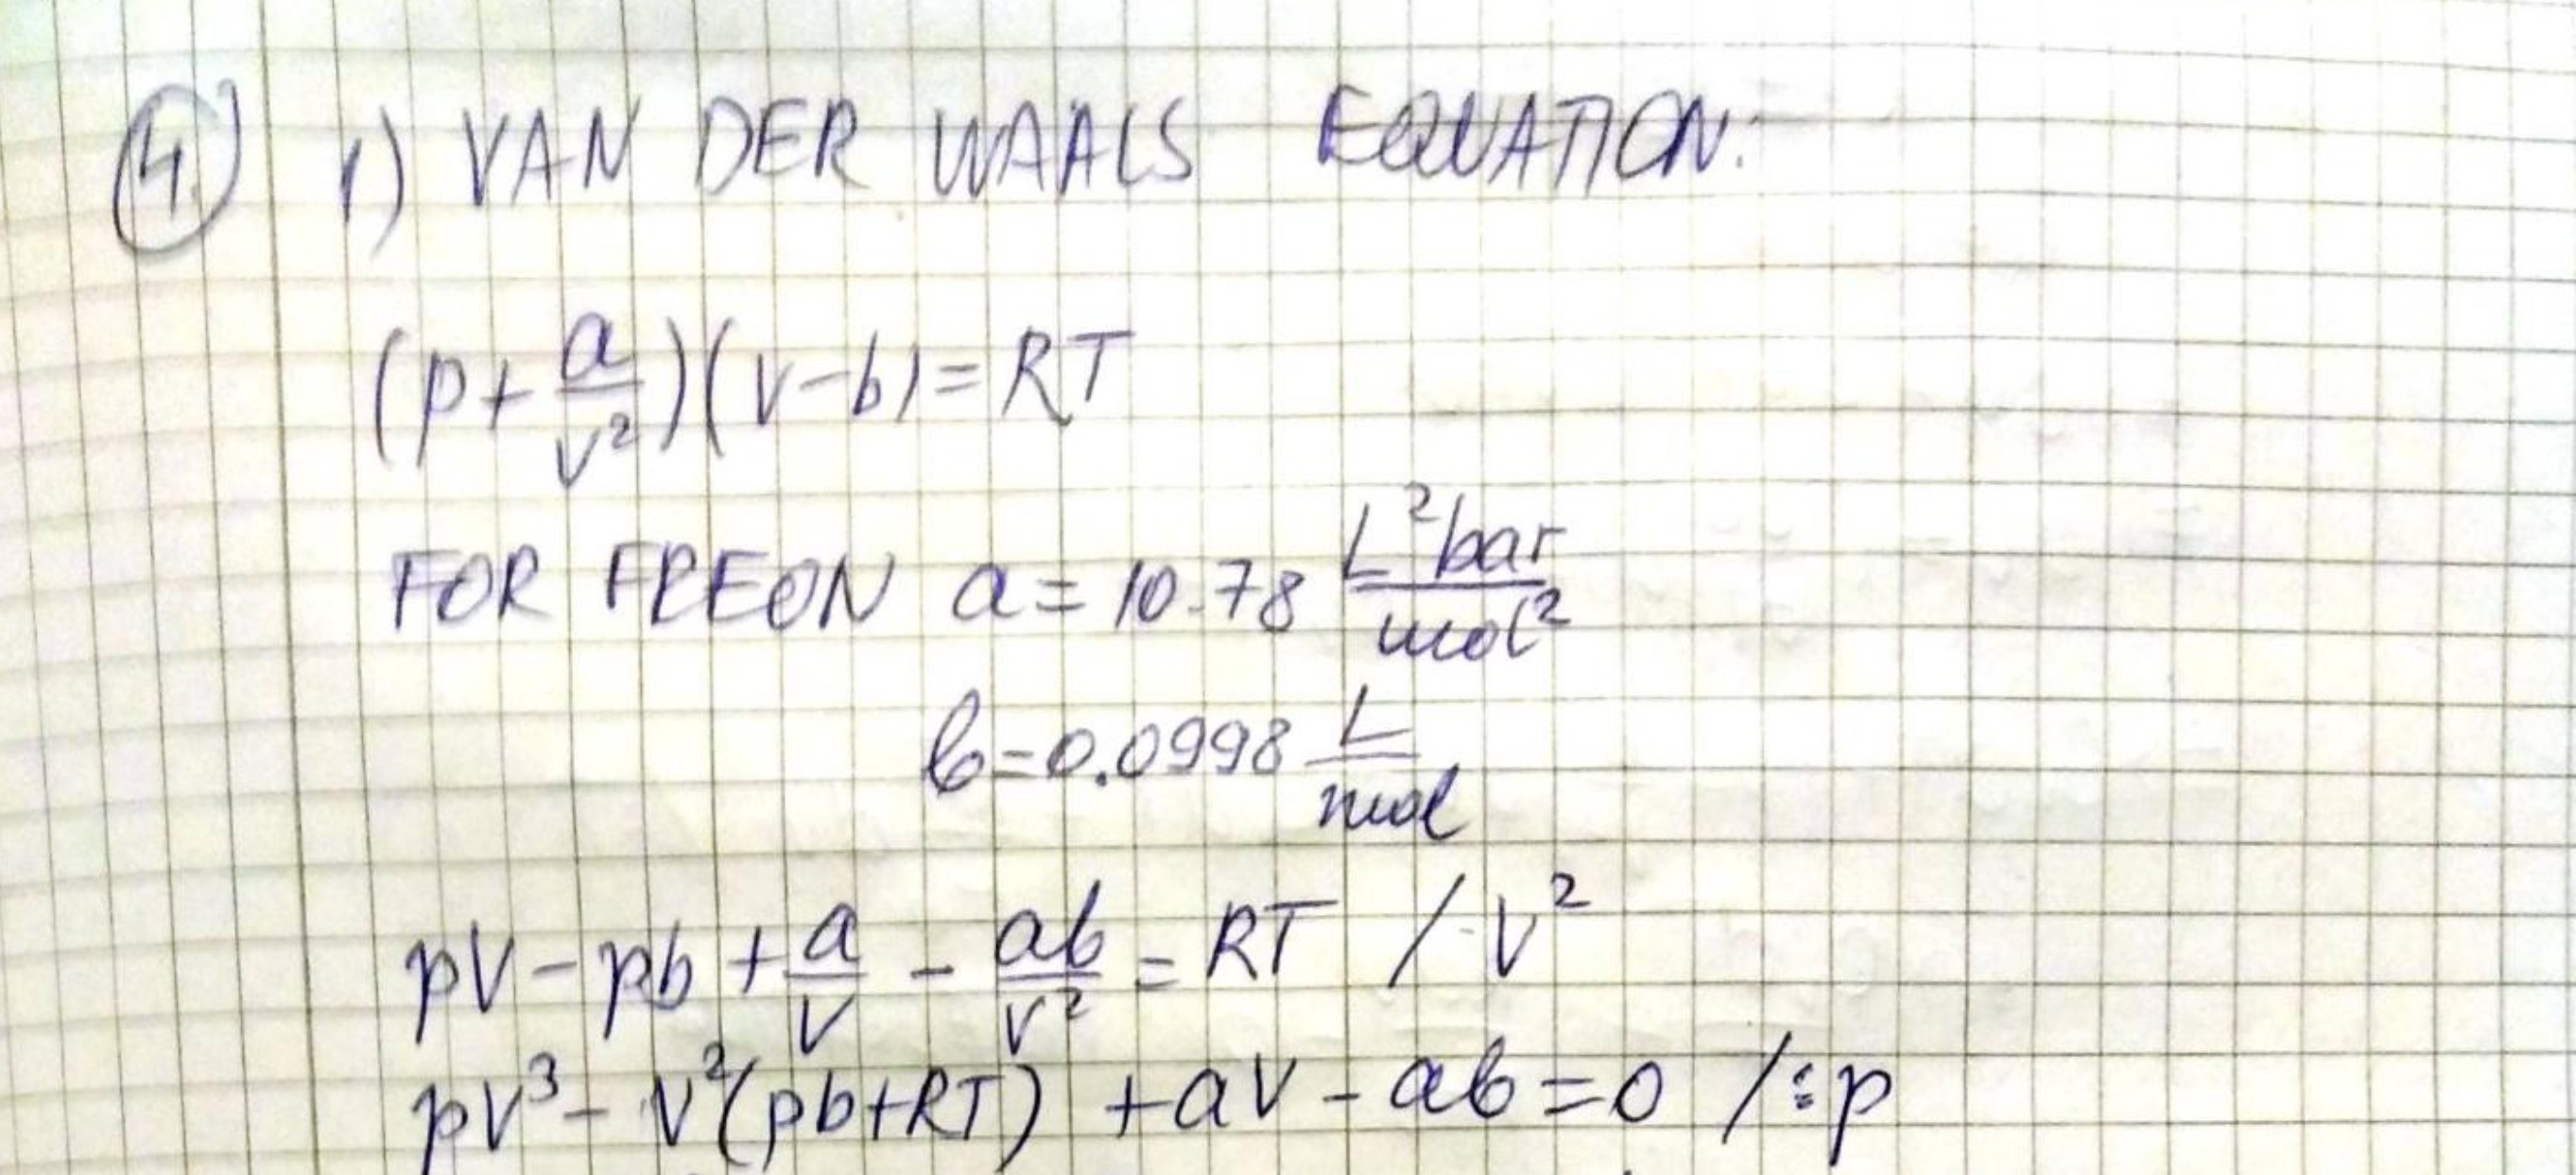 4. 1) VAN DER WAALS EQUATION:
(p + a/v²)(v-b) = RT
FOR FREON a = 10.78 L²bar/mol²
b = 0.0998 L/mol
pV - pb + a/V - ab/V² = RT / ·V²
pV³ - V²(pb+RT) + aV - ab = 0 /:p